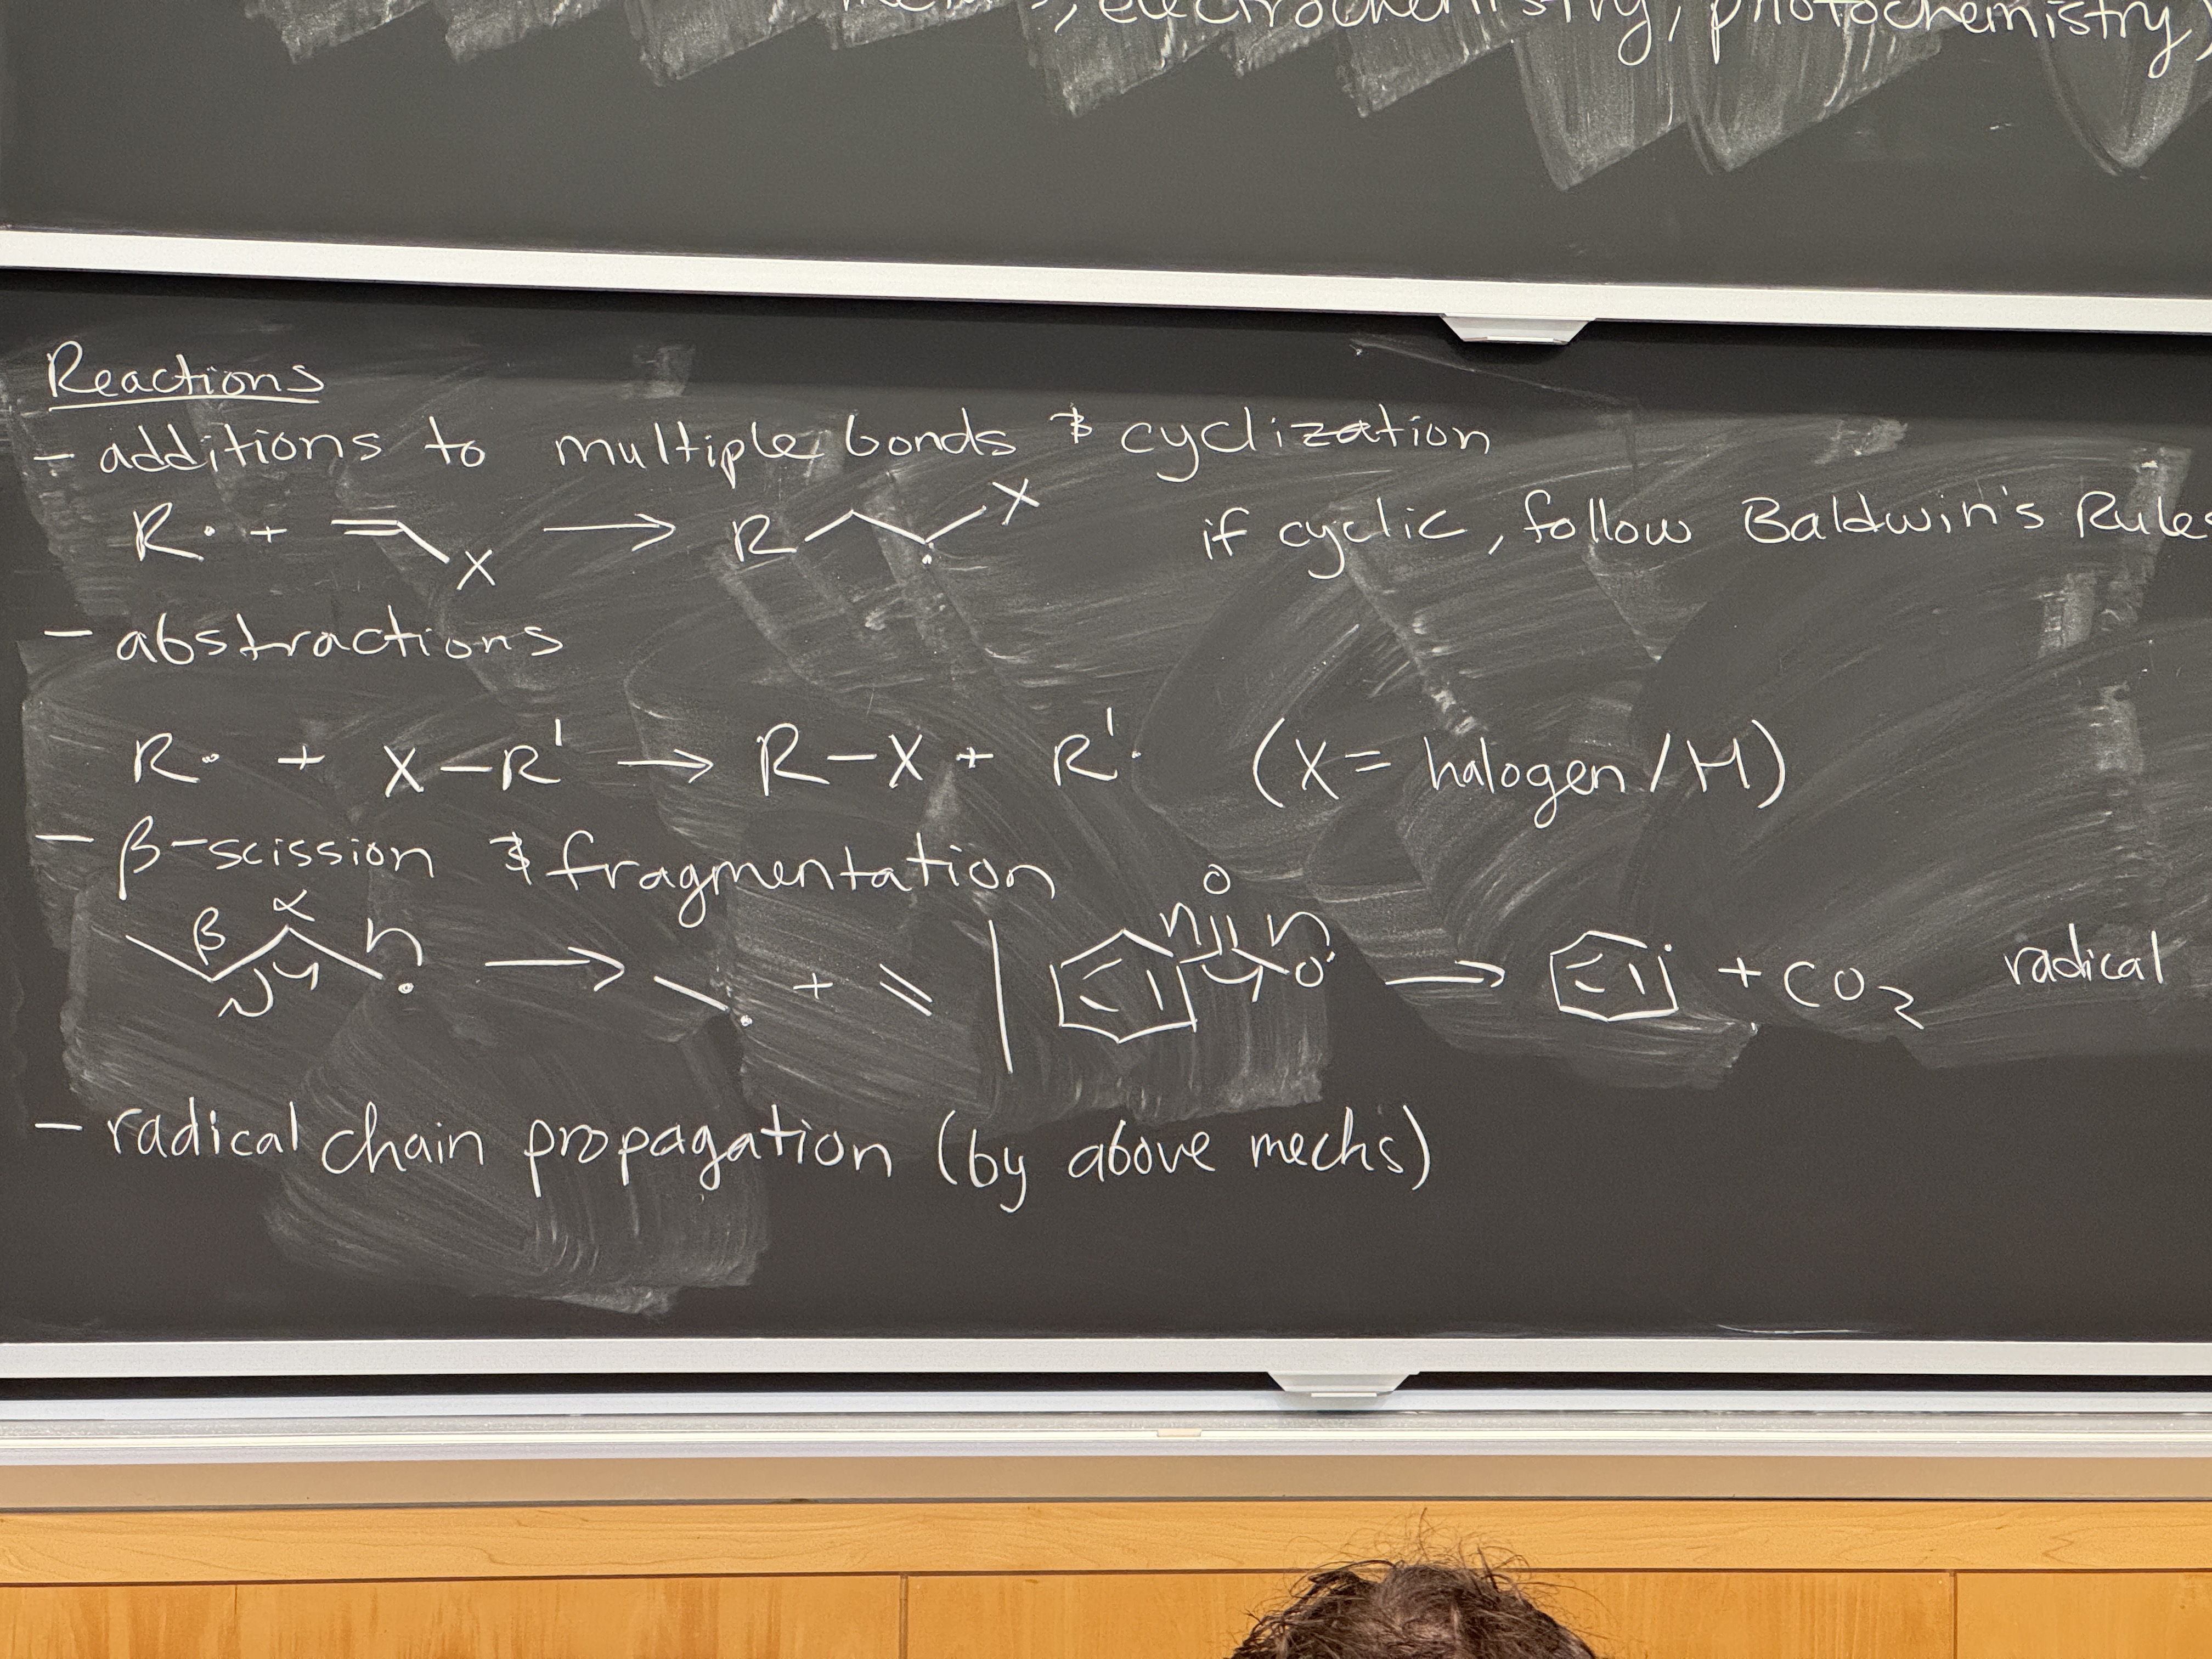 electrochemistry, photochemistry,
Reactions
- additions to multiple bonds & cyclization
R· + X → R X if cyclic, follow Baldwin's Rules
- abstractions
R· + X-R' → R-X + R'· (X = halogen/H)
- β-scission & fragmentation
β α · → · + | O O· → · + CO2 radical
- radical chain propagation (by above mechs)